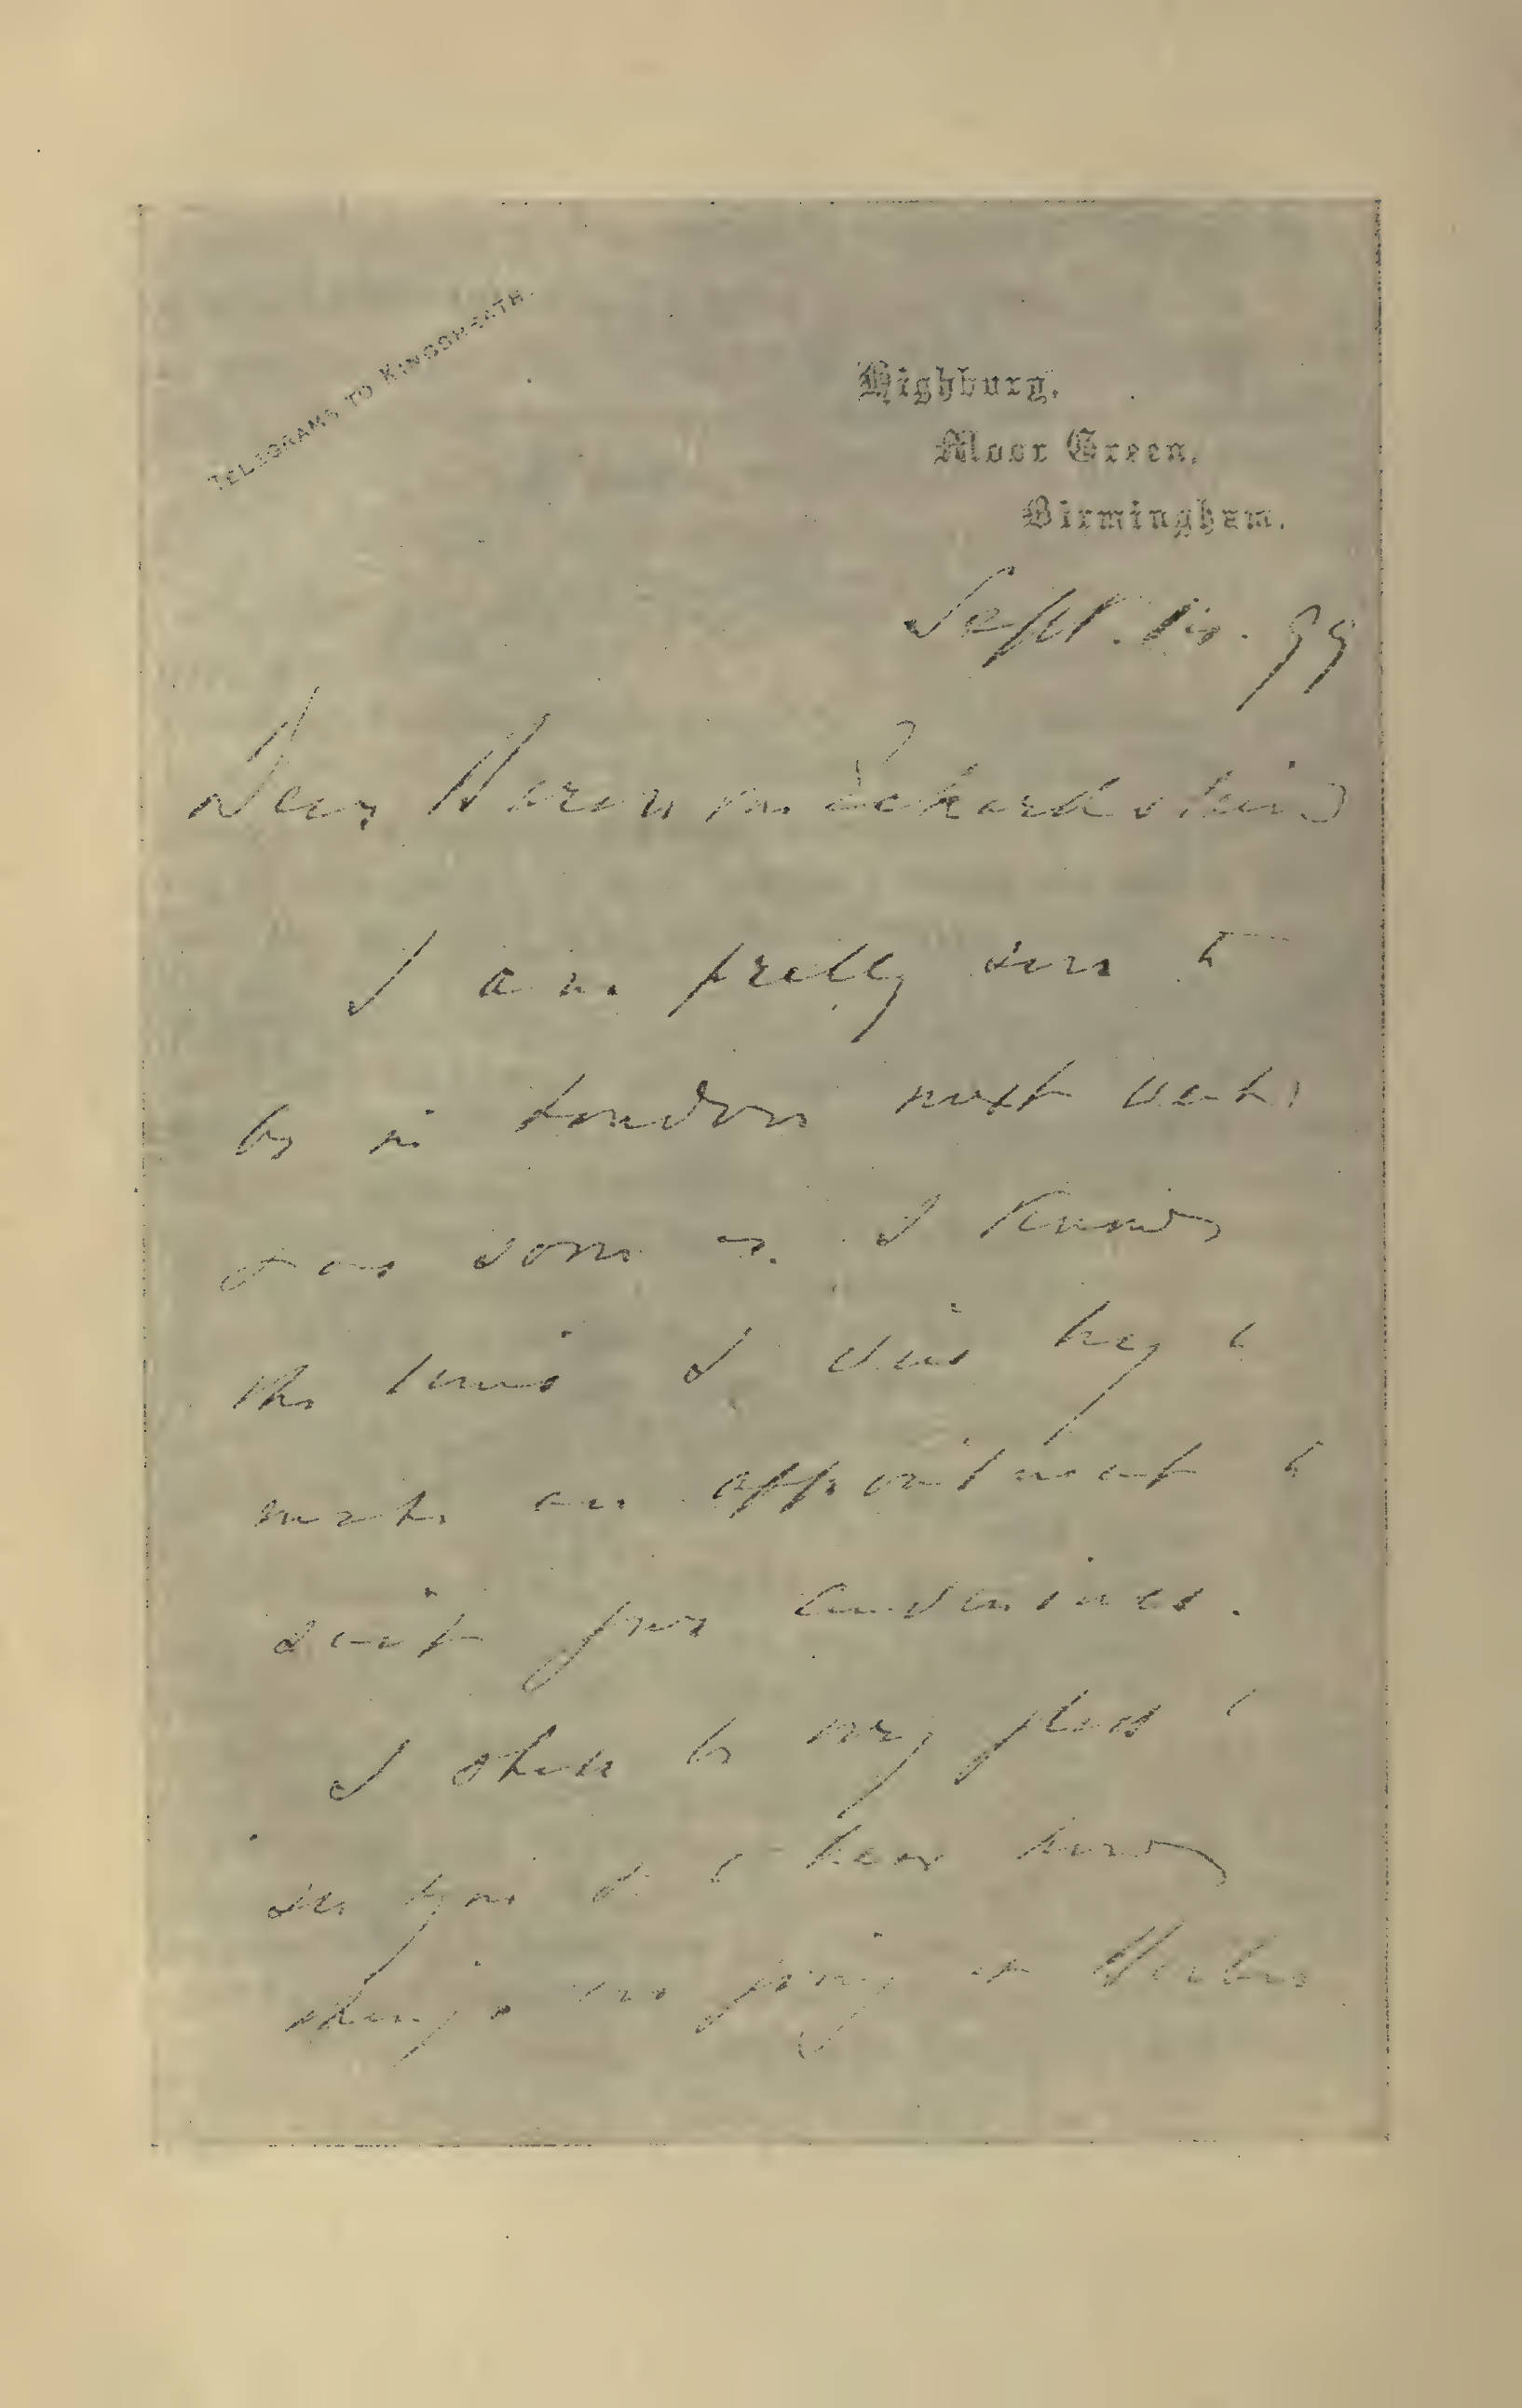 TELEGRAMS TO KINGSHEATH.
Highbury,
Moor Green,
Birmingham.
Sept. 99
Dear Baron von Eckardstein
I am pretty sure to
be in London next week
& as soon as I know
the time I will try to
make an appointment to
suit your convenience.
I shall be very glad to
see you & to hear how
things are going in Berlin